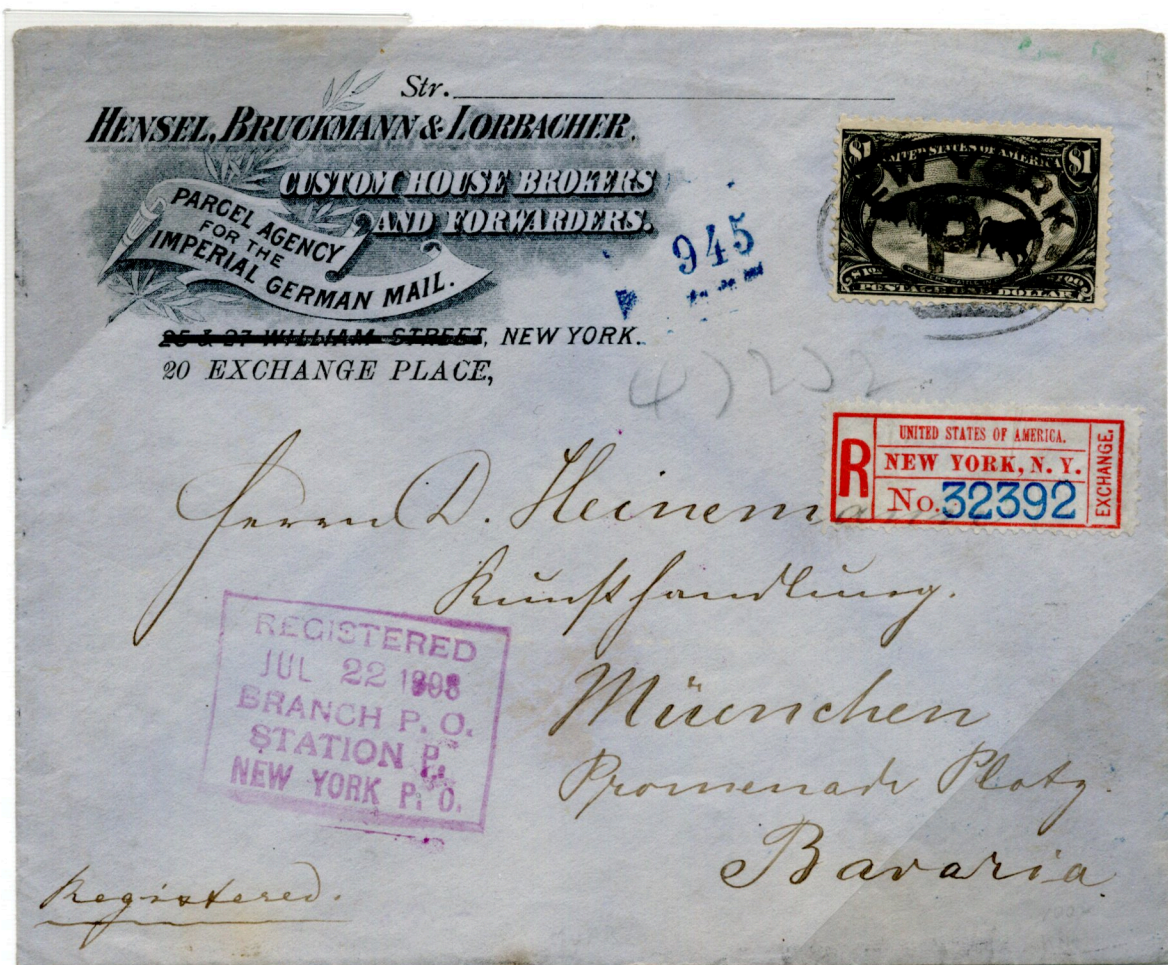 Str.
HENSEL, BRUCKMANN & LORBACHER,
CUSTOM HOUSE BROKERS
AND FORWARDERS.
PARCEL AGENCY
FOR THE
IMPERIAL GERMAN MAIL.
25 & 27 WILLIAM STREET, NEW YORK.
20 EXCHANGE PLACE,
945
$1 UNITED STATES OF AMERICA $1
NEW YORK
P
POSTAGE ONE DOLLAR
R
UNITED STATES OF AMERICA.
NEW YORK, N. Y.
No. 32392
EXCHANGE.
Herrn D. Heinemann
Kunsthandlung.
München
Promenade Platz.
Bavaria.
REGISTERED
JUL 22 1898
BRANCH P. O.
STATION P,
NEW YORK P. O.
Registered.